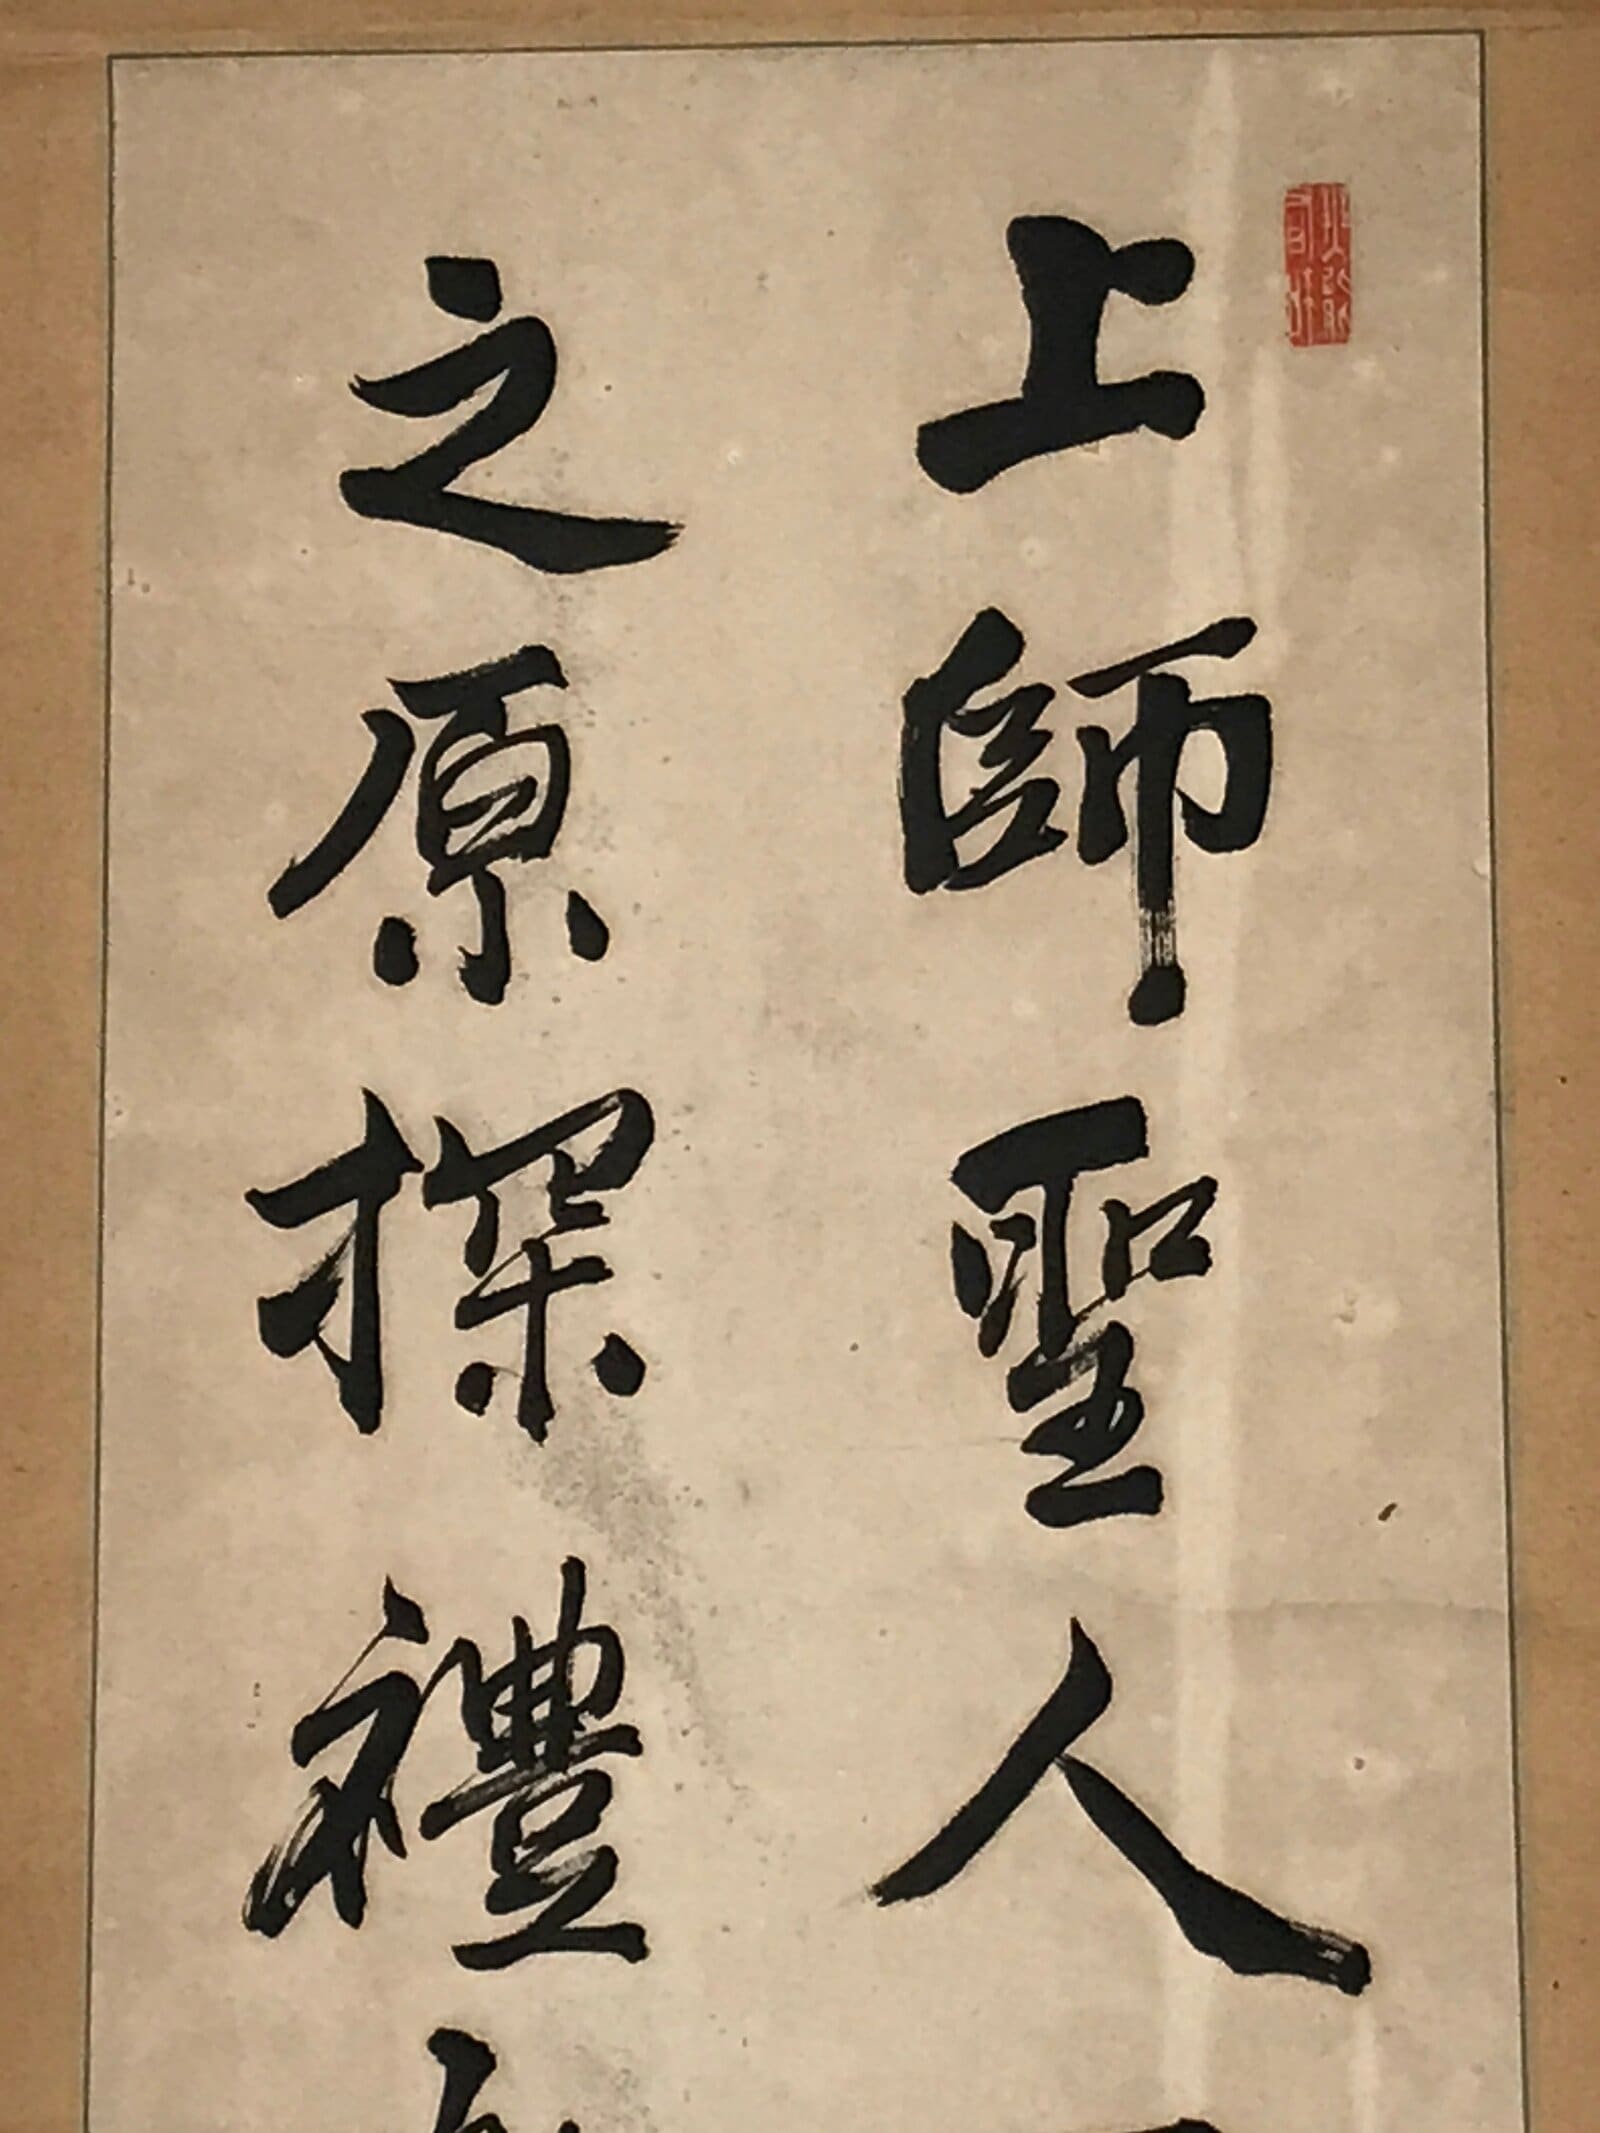 上師聖人
之原探禮